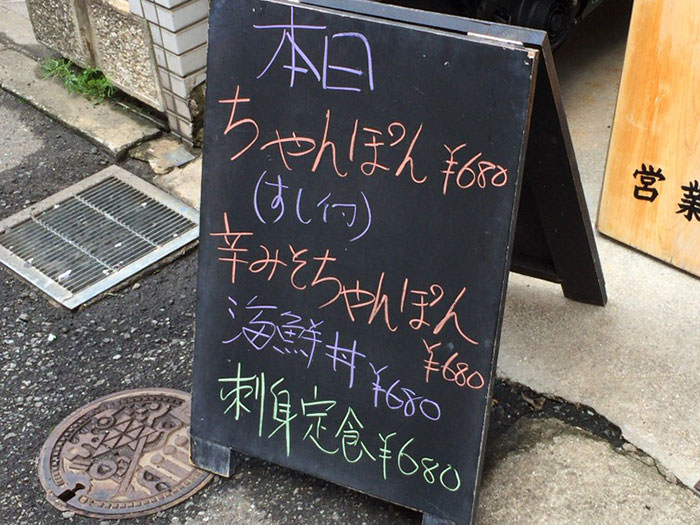 本日
ちゃんぽん ¥680
(すし付)
辛みそちゃんぽん
¥680
海鮮丼 ¥680
刺身定食 ¥680
営業